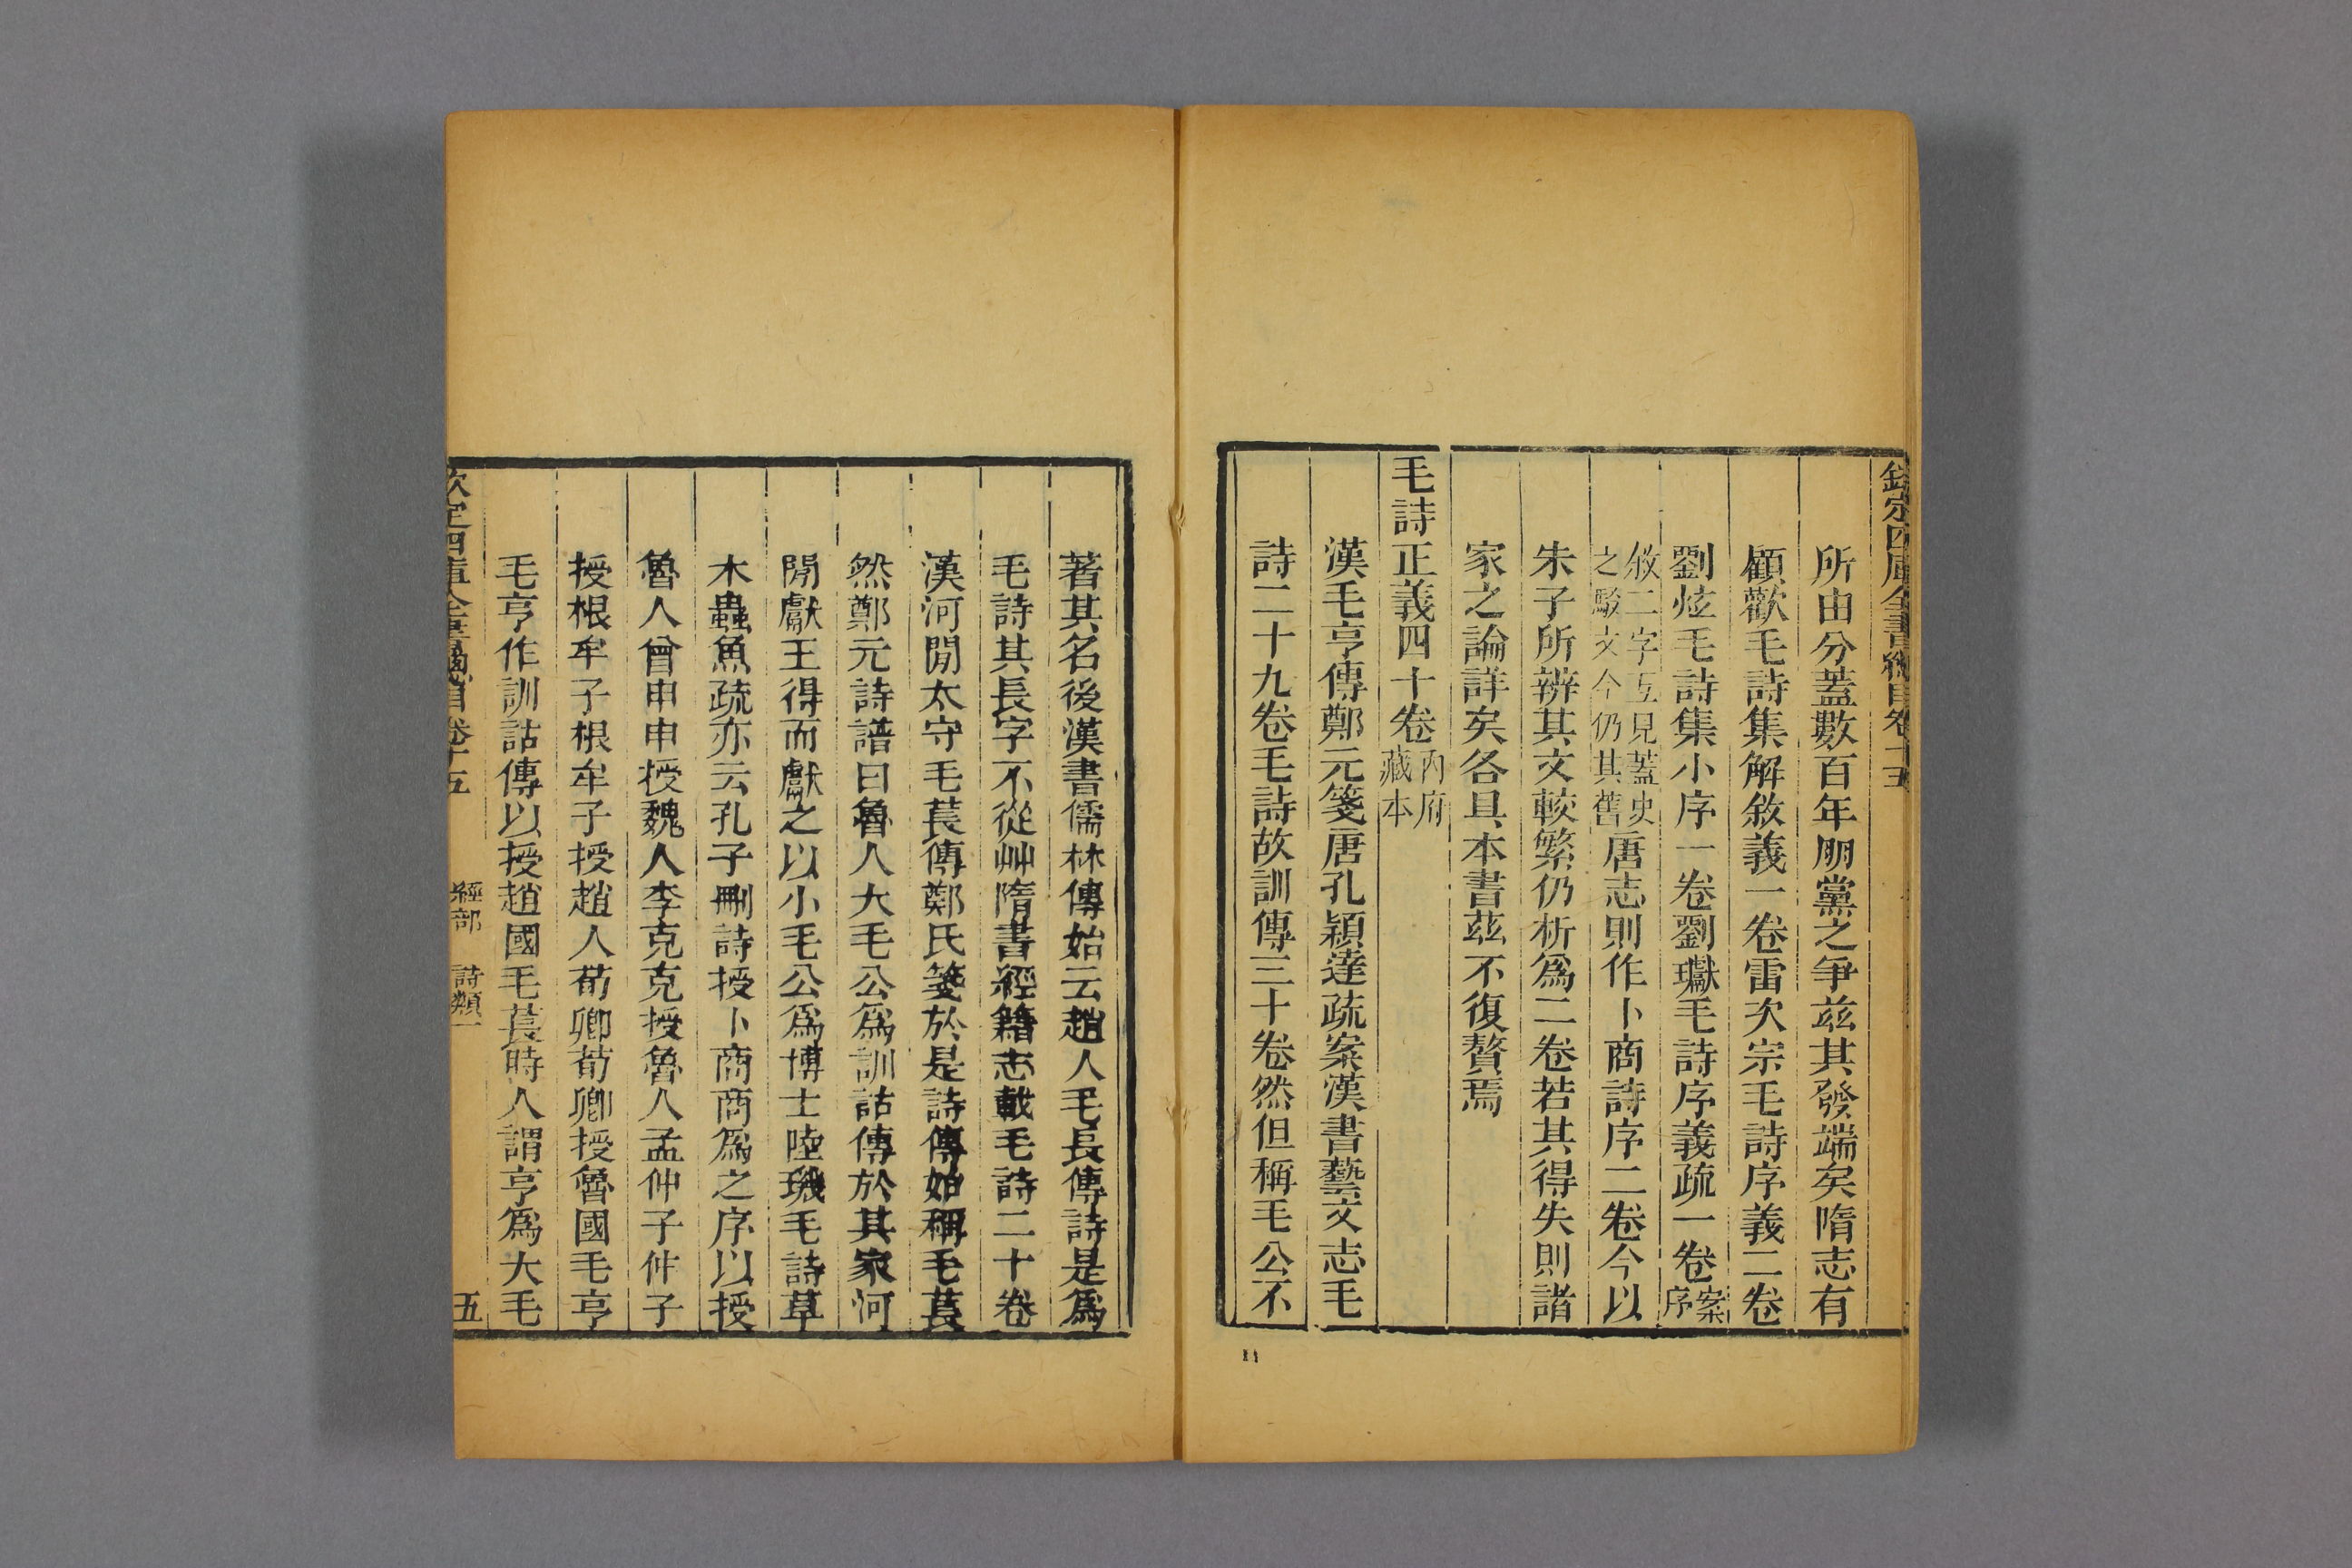 欽定四庫全書總目卷十五
所由分蓋數百年朋黨之爭茲其發端矣隋志有
顧歡毛詩集解敘義一卷雷次宗毛詩序義二卷
劉炫毛詩集小序一卷劉瓛毛詩序義疏一卷案序
敘二字互見蓋史之駮文今仍其舊唐志則作卜商詩序二卷今以
朱子所辨其文較繁仍析爲二卷若其得失則諸
家之論詳矣各具本書茲不復贅焉
毛詩正義四十卷內府藏本
漢毛亨傳鄭元箋唐孔穎達疏案漢書藝文志毛
詩二十九卷毛詩故訓傳三十卷然但稱毛公不
著其名後漢書儒林傳始云趙人毛長傳詩是爲
毛詩其長字不從艸隋書經籍志載毛詩二十卷
漢河閒太守毛萇傳鄭氏箋於是詩傳始稱毛萇
然鄭元詩譜曰魯人大毛公爲訓詁傳於其家河
閒獻王得而獻之以小毛公爲博士陸璣毛詩草
木蟲魚疏亦云孔子刪詩授卜商商爲之序以授
魯人曾申申授魏人李克克授魯人孟仲子仲子
授根牟子根牟子授趙人荀卿荀卿授魯國毛亨
毛亨作訓詁傳以授趙國毛萇時人謂亨爲大毛
欽定四庫全書總目卷十五 經部 詩類一 五